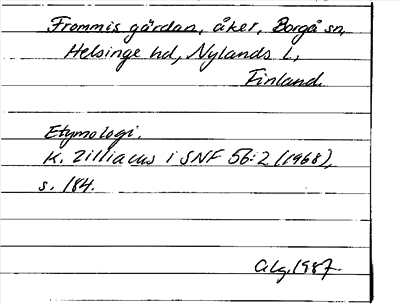 Frommis gärdan, åker, Borgå sn,
Helsinge hd, Nylands l.,
Finland.
Etymologi.
K. Zilliacus i SNF 56:2 (1968),
s. 184.
Alg. 1987.